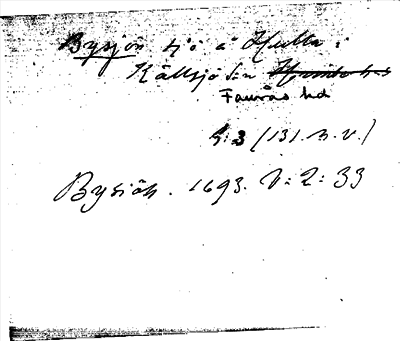 Bysjön sjö å Hulta i
Källsjö sn
Faurås hd
h: 3 (131. n. v.)
Bysiöh. 1693. V: 2: 33